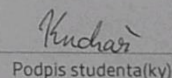 Kuchař
Podpis studenta(ky)